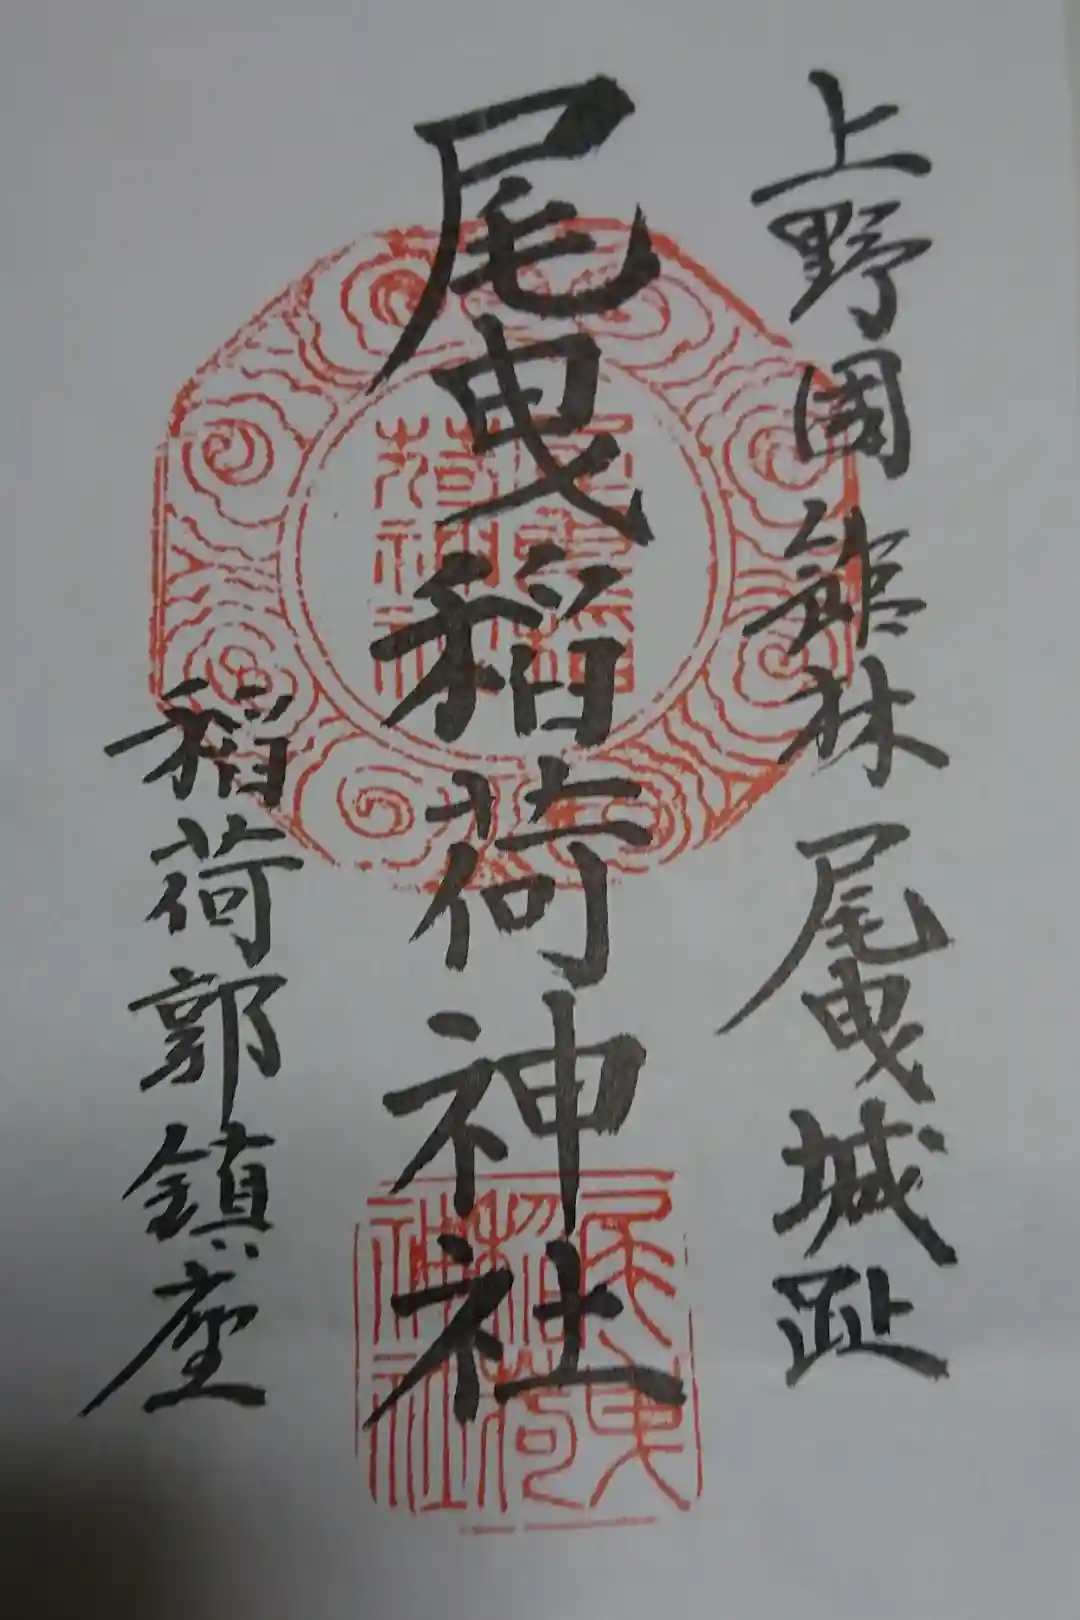 上野国館林尾曳城趾
尾曳稲荷神社
稲荷郭鎮座
尾曳
稲荷
神社